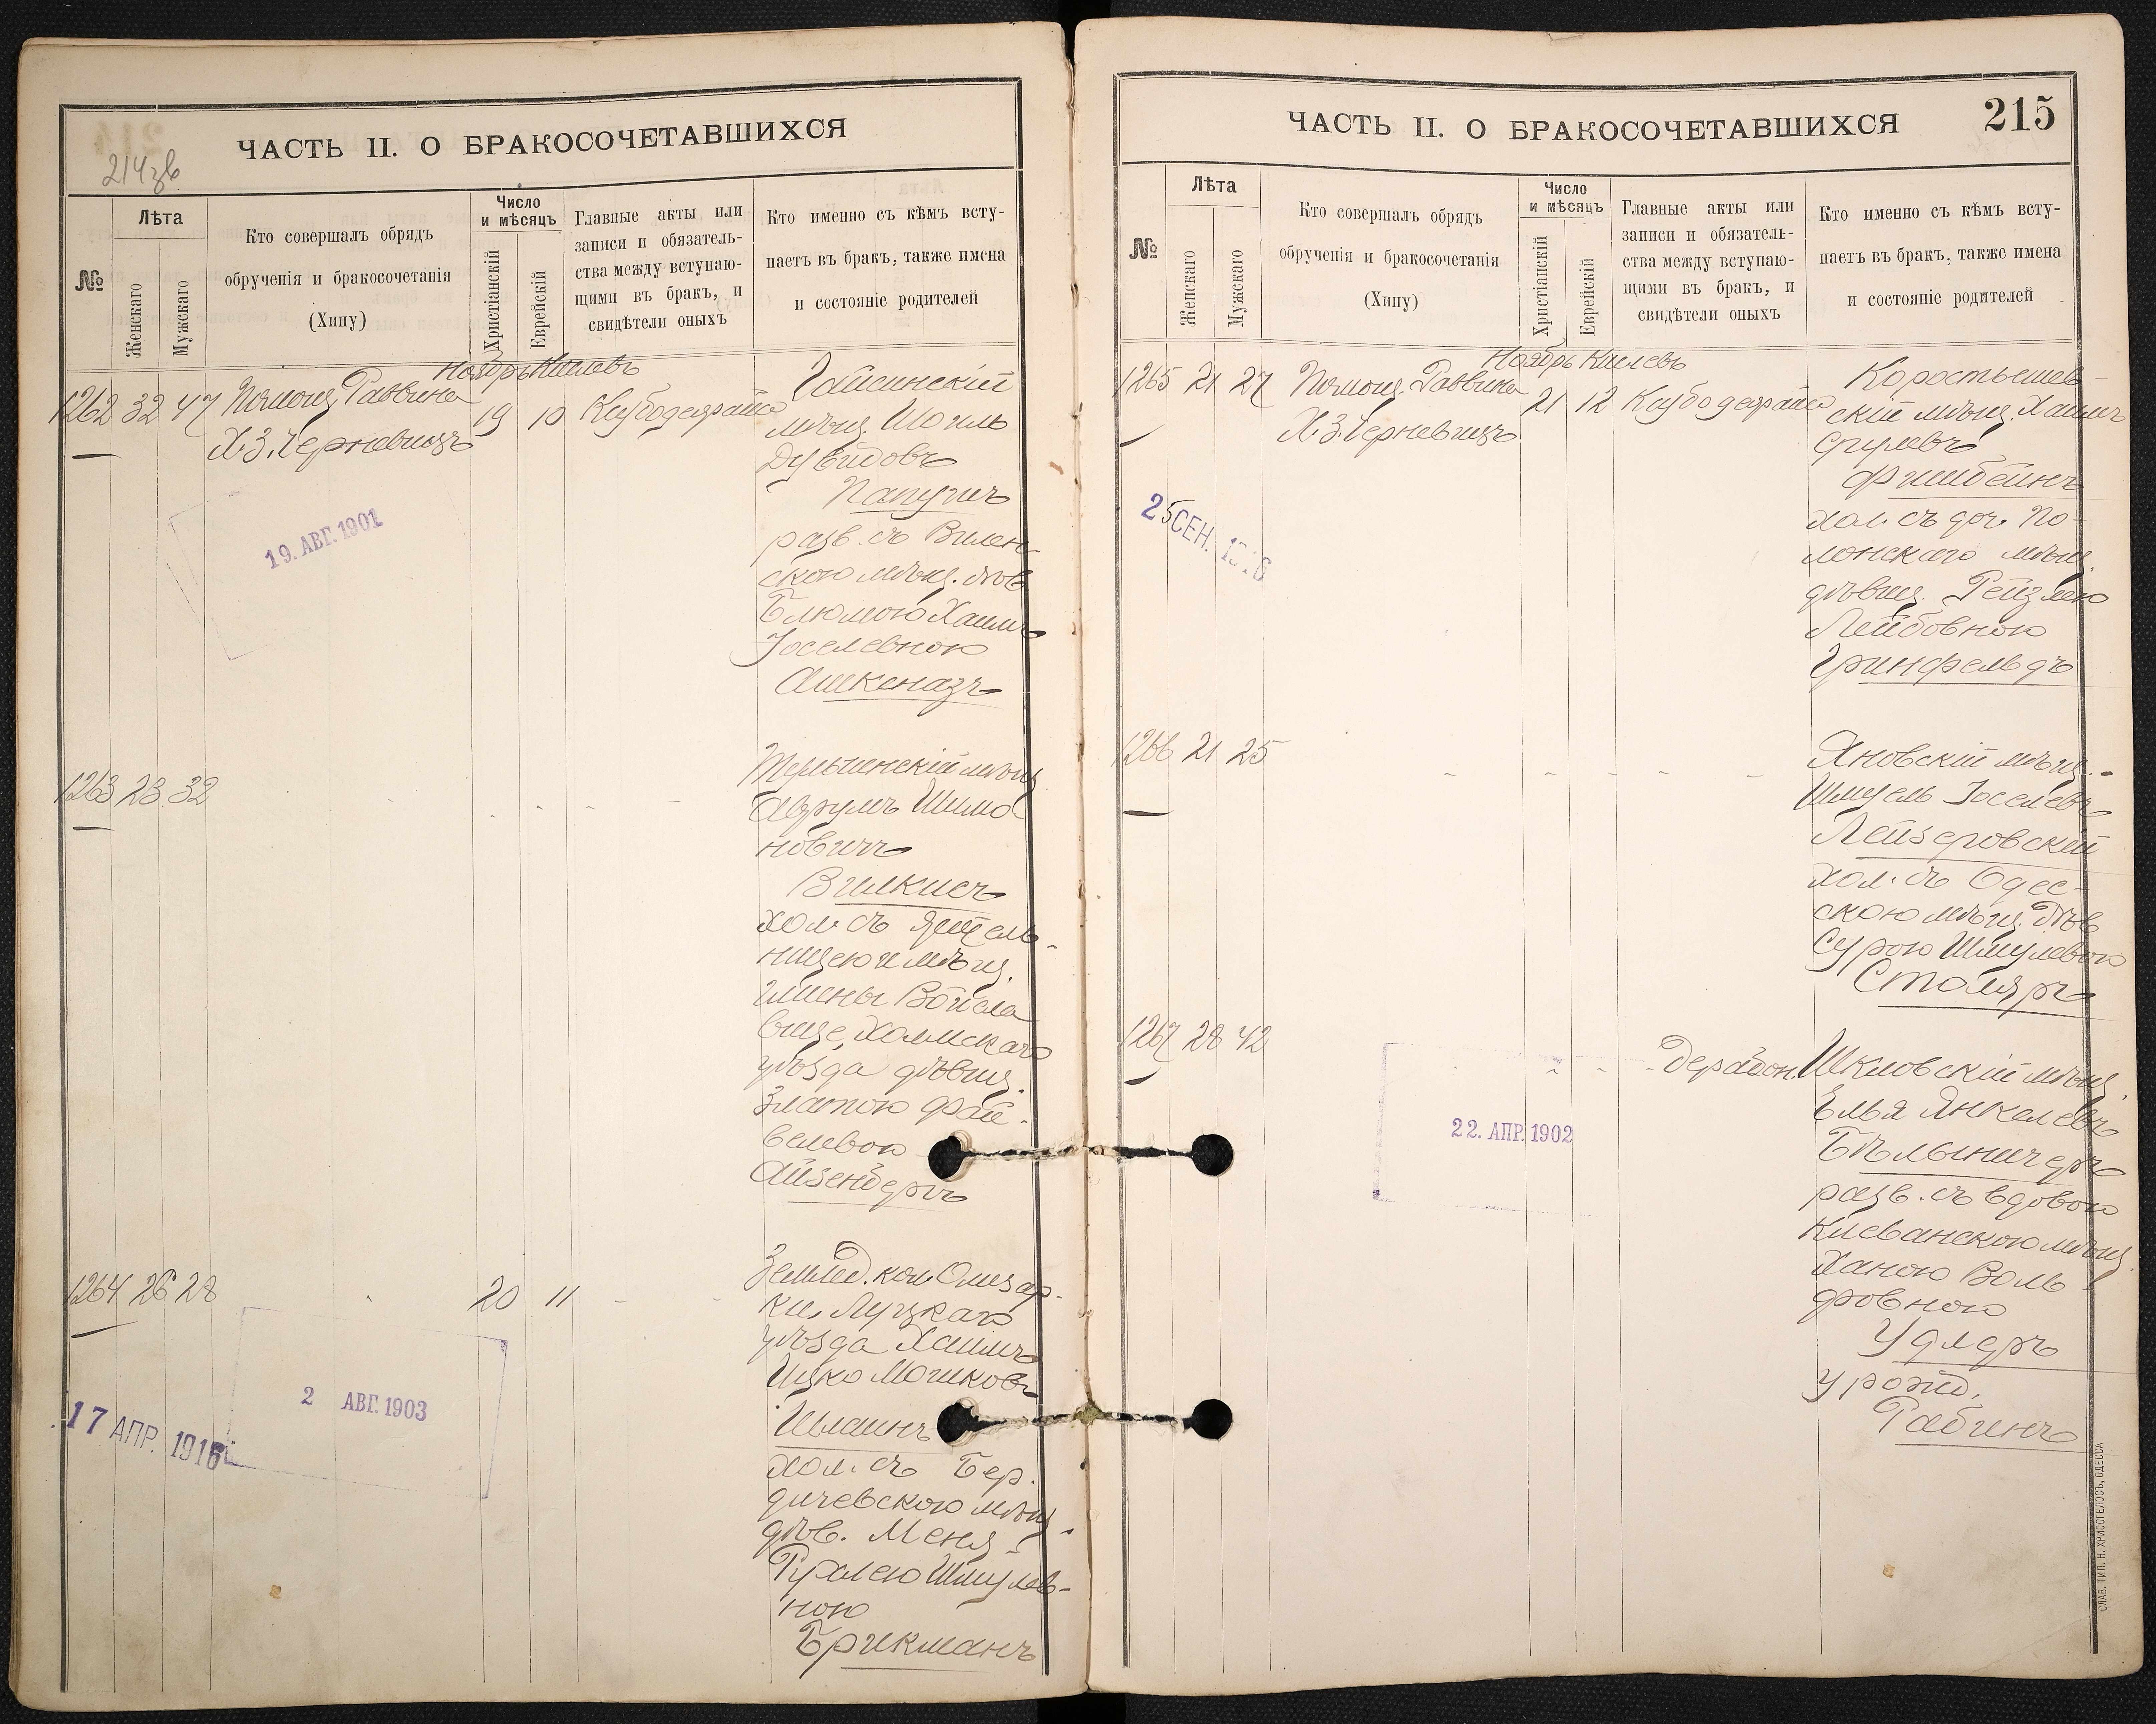 ЧАСТЬ II. О БРАКОСОЧЕТАВШИХСЯ
214зв
№
Лѣта
Женскаго
Мужскаго
Кто совершалъ обрядъ
обрученія и бракосочетанія
(Хипу)
Число
и мѣсяцъ
Христіанскій
Еврейскій
Главные акты или
записи и обязатель-
ства между вступаю-
щими въ бракъ, и
свидѣтели оныхъ
Кто именно съ кѣмъ всту-
паетъ въ бракъ, также имена
и состояніе родителей
Ноябрь Кислевъ
1262 32 47 Помощ. Раввина 19 10
Х.З. Черновицъ
Гайсинскій
мѣщ. Шоиль
Дувидовъ
Папугинъ
разв. съ Вилен-
скою мѣщ. дѣв
Блюмою Хаим
Іоселевною
Ашкеназъ
19. АВГ. 1901
1263 23 32
мѣщ
Аврумъ Шимо
новичъ
Вилкисъ
хол. съ жител-
ницею и мѣщ.
гмины Войсла
вице, Холмскаго
уѣзда дѣвиц.
Златою Фай-
велевою
Айзенбергъ
1264 26 28 20 11
Землед. кол. Олизар-
ки, Луцкаго
уѣзда Хаимъ
Ицко Мошковъ
Шлаинъ
хол. съ Бер-
дичевскою мѣщ.
дѣв. Меня-
Рухлею Шмулев-
ною
Брикманъ
2 АВГ. 1903
17 АПР. 1916
ЧАСТЬ II. О БРАКОСОЧЕТАВШИХСЯ 215
№
Лѣта
Женскаго
Мужскаго
Кто совершалъ обрядъ
обрученія и бракосочетанія
(Хипу)
Число
и мѣсяцъ
Христіанскій
Еврейскій
Главные акты или
записи и обязатель-
ства между вступаю-
щими въ бракъ, и
свидѣтели оныхъ
Кто именно съ кѣмъ всту-
паетъ въ бракъ, также имена
и состояніе родителей
Ноябрь Кислевъ
1265 21 27 Помощ. Раввина 21 12
Х.З. Черновицъ
Коростышев-
скій мѣщ. Хаимъ
Срулевъ
Фишбейнъ
хол. съ доч. По-
лонскаго мѣщ.
дѣвиц. Рейзлею
Лейбовною
Гринфельдъ
25 СЕН. 1916
1266 21 25
Яновскій мѣщ.
Шмуель Іоселевъ
Лейзеровскій
хол. съ Одес-
скою мѣщ. дѣв
Сурою Шмулевою
Столяръ
1267 28 42
Шкловскій мѣщ.
Элья Янкелевъ
Бѣлыничеръ
разв. съ вдовою
Клеванскою мѣщ.
Ханою Воль-
фовною
Удлеръ
урожд.
Рабинъ
22. АПР. 1902
СЛАВ. ТИП. Н. ХРИСОГЕЛОСЪ, ОДЕССА